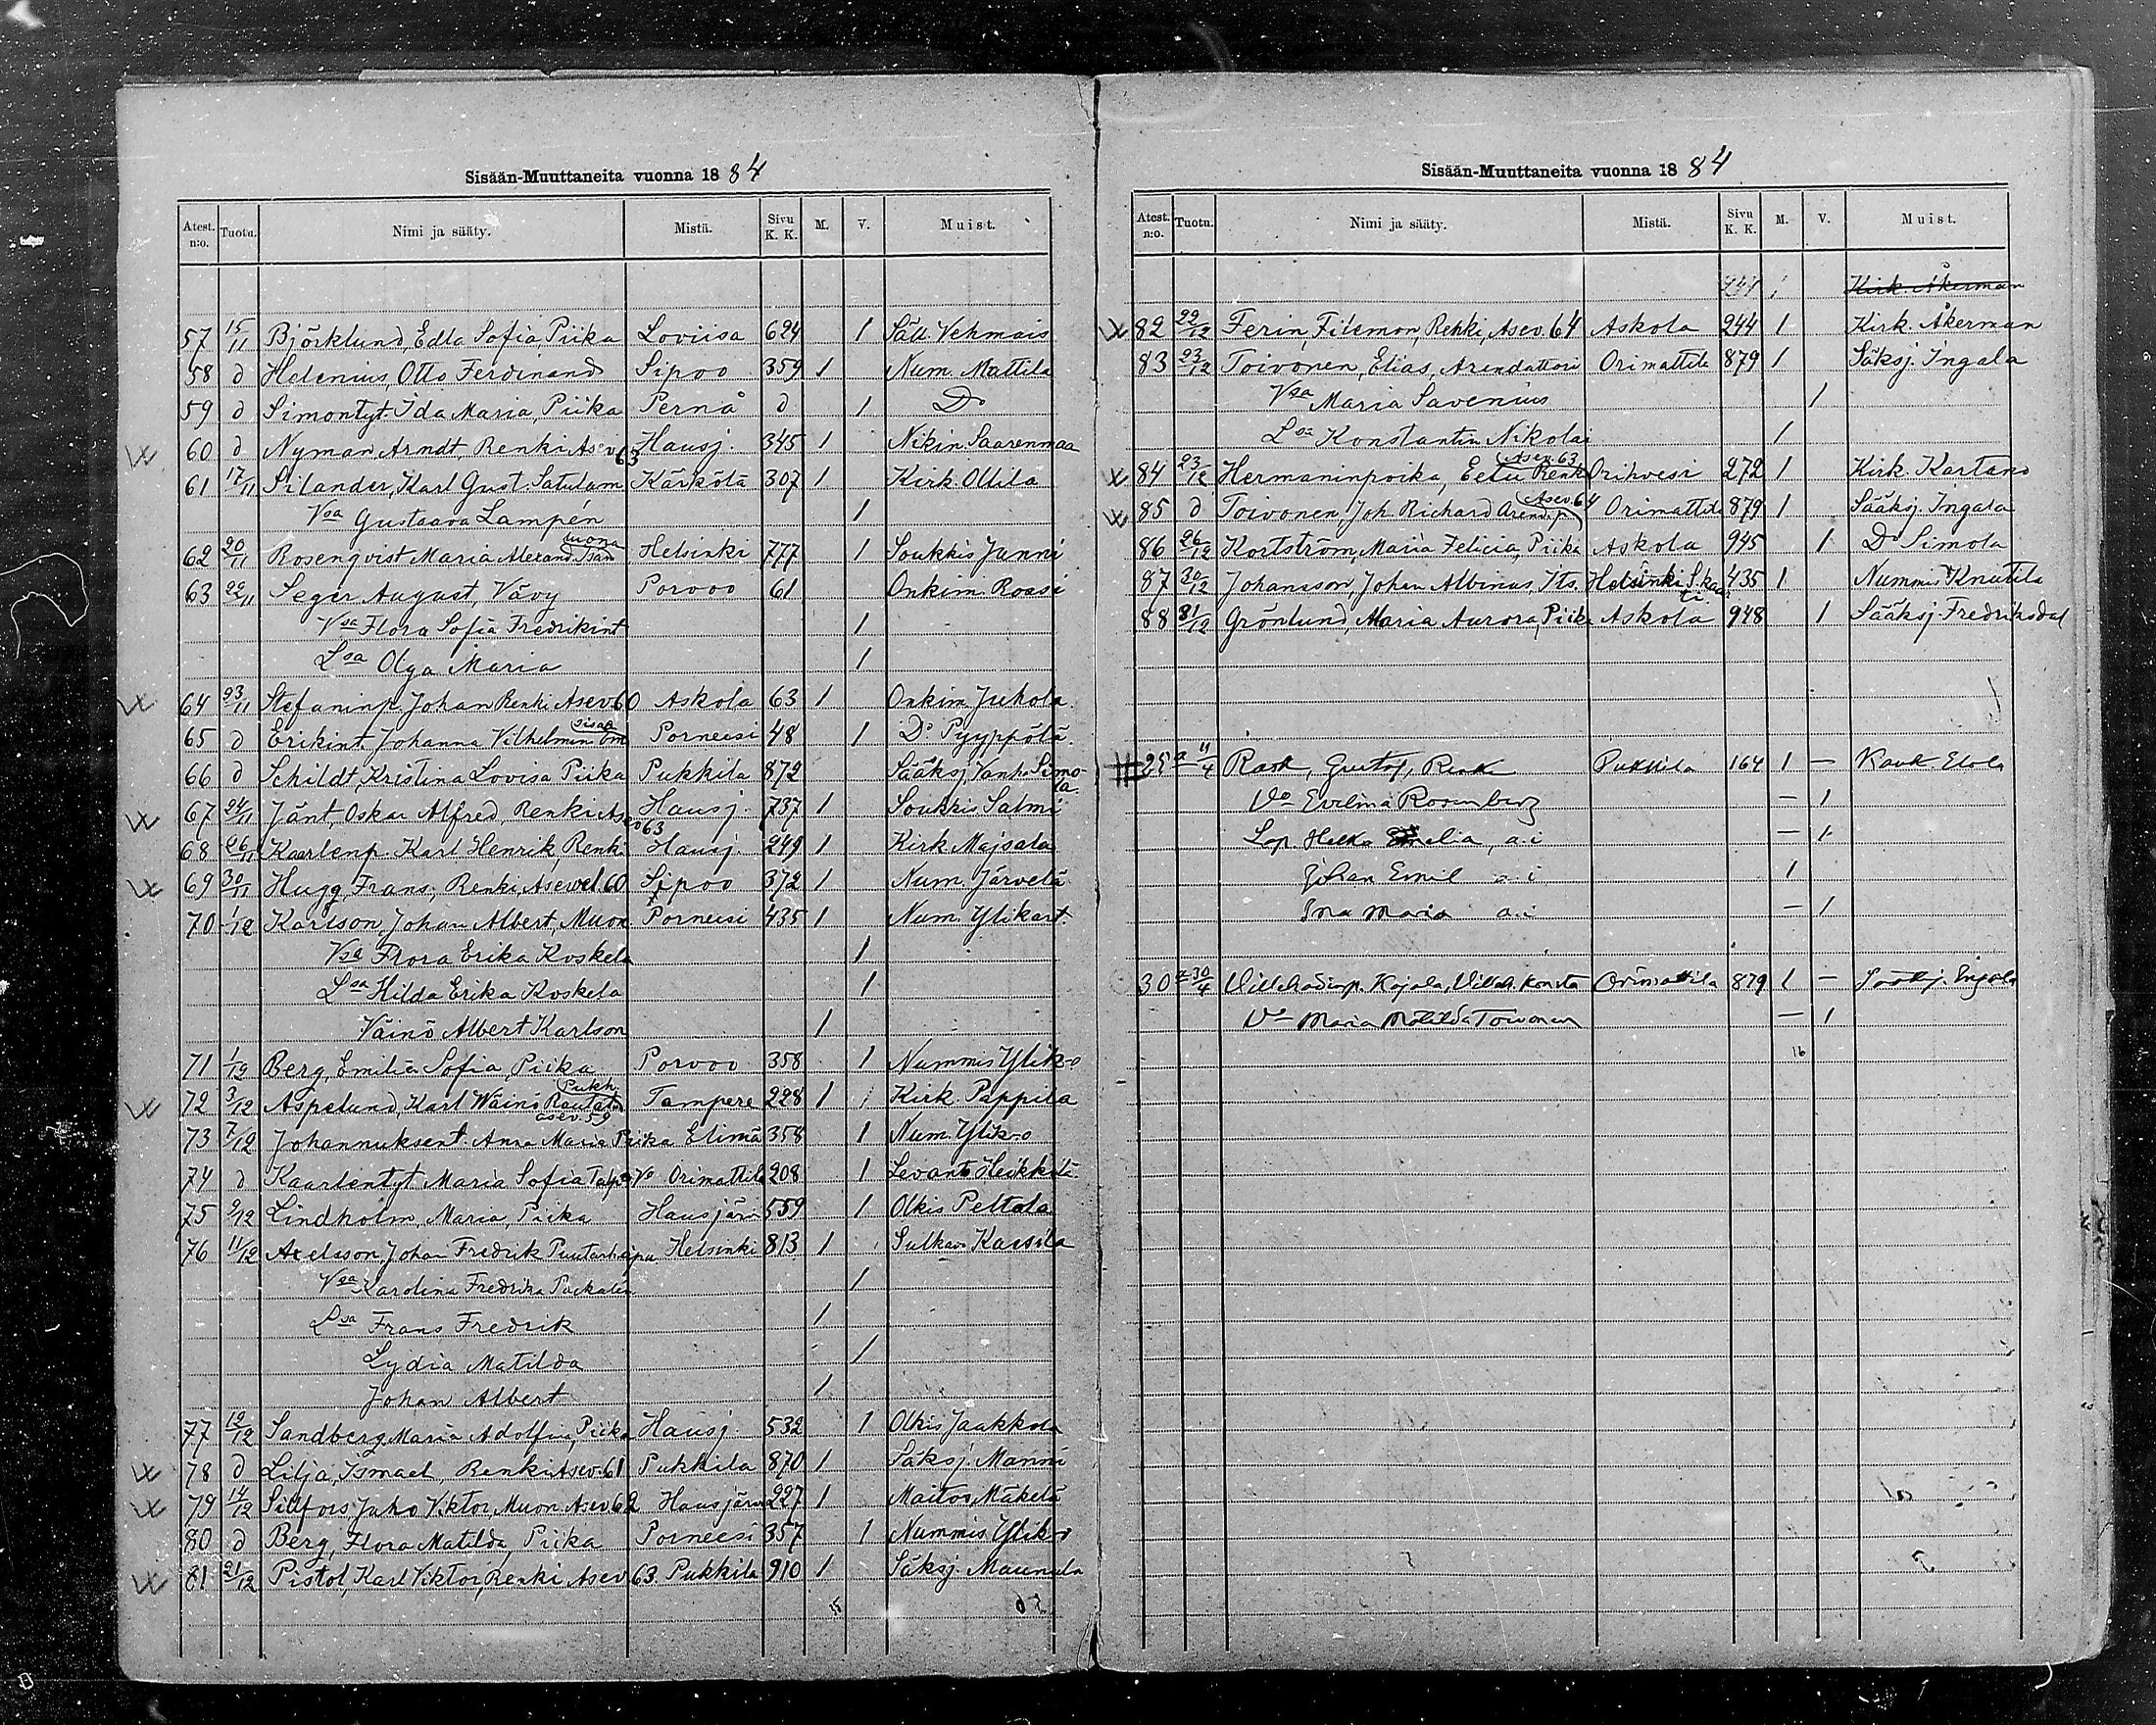 Sisään-Muuttaneita vuonna 1884
Atest. n:o. Tuotu. Nimi ja sääty. Mistä. Sivu K. K. M. V. Muist.
57 15/11 Björklund, Edla Sofia Piika Loviisa 624 1 Säll. Vehmais
58 d Helenius, Otto Ferdinand Sipoo 359 1 Num. Mattila
59 d Simontyt. Ida Maria, Piika Pernå d 1 Do
60 d Nyman, Arndt, Renki Asev 63 Hausj. 345 1 Nikin. Saarenmaa
61 17/11 Silander, Karl Gust. Satulam Kärkölä 307 1 Kirk. Ollila
Vsa Gustaava Lampén 1
62 20/11 Rosenqvist Maria Alexand. Helsinki 777 1 Soukkis Junni
63 22/11 Seger August, Vävy Porvoo 61 Onkim. Rossi
Vsa Flora Sofia Fredrikint 1
Lsa Olga Maria 1
64 23/11 Stefaninp. Johan Renki Asev 60 Askola 63 1 Onkim Juhola
65 d Erikint. Johanna Vilhelmin Porneesi 48 1 Do Pyyppölä
66 d Schildt, Kristina Lovisa Piika Pukkila 872 Sääksj. Vanh. Simola
67 24/11 Jänt, Oskar Alfred, Renki Asev 63 Hausj. 737 1 Soukkis Salmi
68 26/11 Kaarlenp. Karl Henrik, Renki Hausj. 249 1 Kirk Majsala
69 30/11 Hugg, Frans, Renki Asewel 60 Sipoo 372 1 Num. Järvelä
70 1/12 Karlson, Johan Albert, Muon Porneesi 435 1 Num. Ylikart.
Vsa Flora Erika Koskela 1
Lsa Hilda Erika Koskela 1
Väinö Albert Karlson 1
71 1/12 Berg, Emilia Sofia, Piika Porvoo 358 1 Nummis Ylik-o
72 3/12 Aspelund, Karl Wäinö asev. 59 Tampere 228 1 Kirk. Pappila
73 7/12 Johannuksent. Anna Maria Piika Elimä 358 1 Num. Ylik-o
74 d Kaarlentyt Maria Sofia Orimattila 208 1 Levant. Heikkilä
75 9/12 Lindholm, Maria, Piika Hausjärvi 559 1 Olkis Peltola
76 11/12 Axelsson, Johan Fredrik Helsinki 813 1 Sulkava Kassila
Vsa Karolina Fredrika 1
Lsa Frans Fredrik 1
Lydia Matilda 1
Johan Albert 1
77 12/12 Sandberg, Maria Adolfin, Piika Hausj. 532 1 Olkis Jaakkola
78 d Lilja, Ismael, Renki Asev. 61 Pukkila 870 1 Säksj. Manni
79 14/12 Juho Viktor, Muon. Asev 62 Hausjärvi 227 1 Maitos Mäkelä
80 d Berg, Flora Matilda, Piika Porneesi 357 1 Nummis Ylik-o
81 21/12 Pistol, Karl Viktor, Renki Asev 63 Pukkila 910 1 Säksj. Maunula
Sisään-Muuttaneita vuonna 1884
Atest. n:o. Tuotu. Nimi ja sääty. Mistä. Sivu K. K. M. V. Muist.
Kirk. Åkerman
82 22/12 Ferin, Filemon, Renki, Asev. 64 Askola 244 1 Kirk. Åkerman
83 23/12 Toivonen, Elias, Arendattori Orimattila 879 1 Säksj. Ingala
Vsa Maria Savenius 1
Lsa Konstantin Nikolai 1
84 23/12 Hermaninpoika, Eetu Renki Asev. 63 Orihvesi 272 1 Kirk. Kartano
85 d Toivonen, Joh. Richard Arend. p. Asev. 64 Orimattila 879 1 Sääksj. Ingala
86 26/12 Kortström, Maria Felicia, Piika Askola 945 1 Do Simola
87 30/12 Johansson, Johan Albinus, Its. Helsinki 435 1 Nummis Knutila
88 31/12 Grönlund, Maria Aurora, Piika Askola 948 1 Sääksj. Fredriksdal
Rask, Gustaf, Renki Pukkila 164 1 — Kauk. Elola
Vo Evelina Rosenberg — 1
Lap. Helka a.i — 1
Johan Emil a.i 1
Ina Maria a.i — 1
30 30/4 Willehadinp. Kajala, Konsta Orimattila 879 1 — Sääksj. Ingala
Vo Maria Matilda Toivonen — 1
16